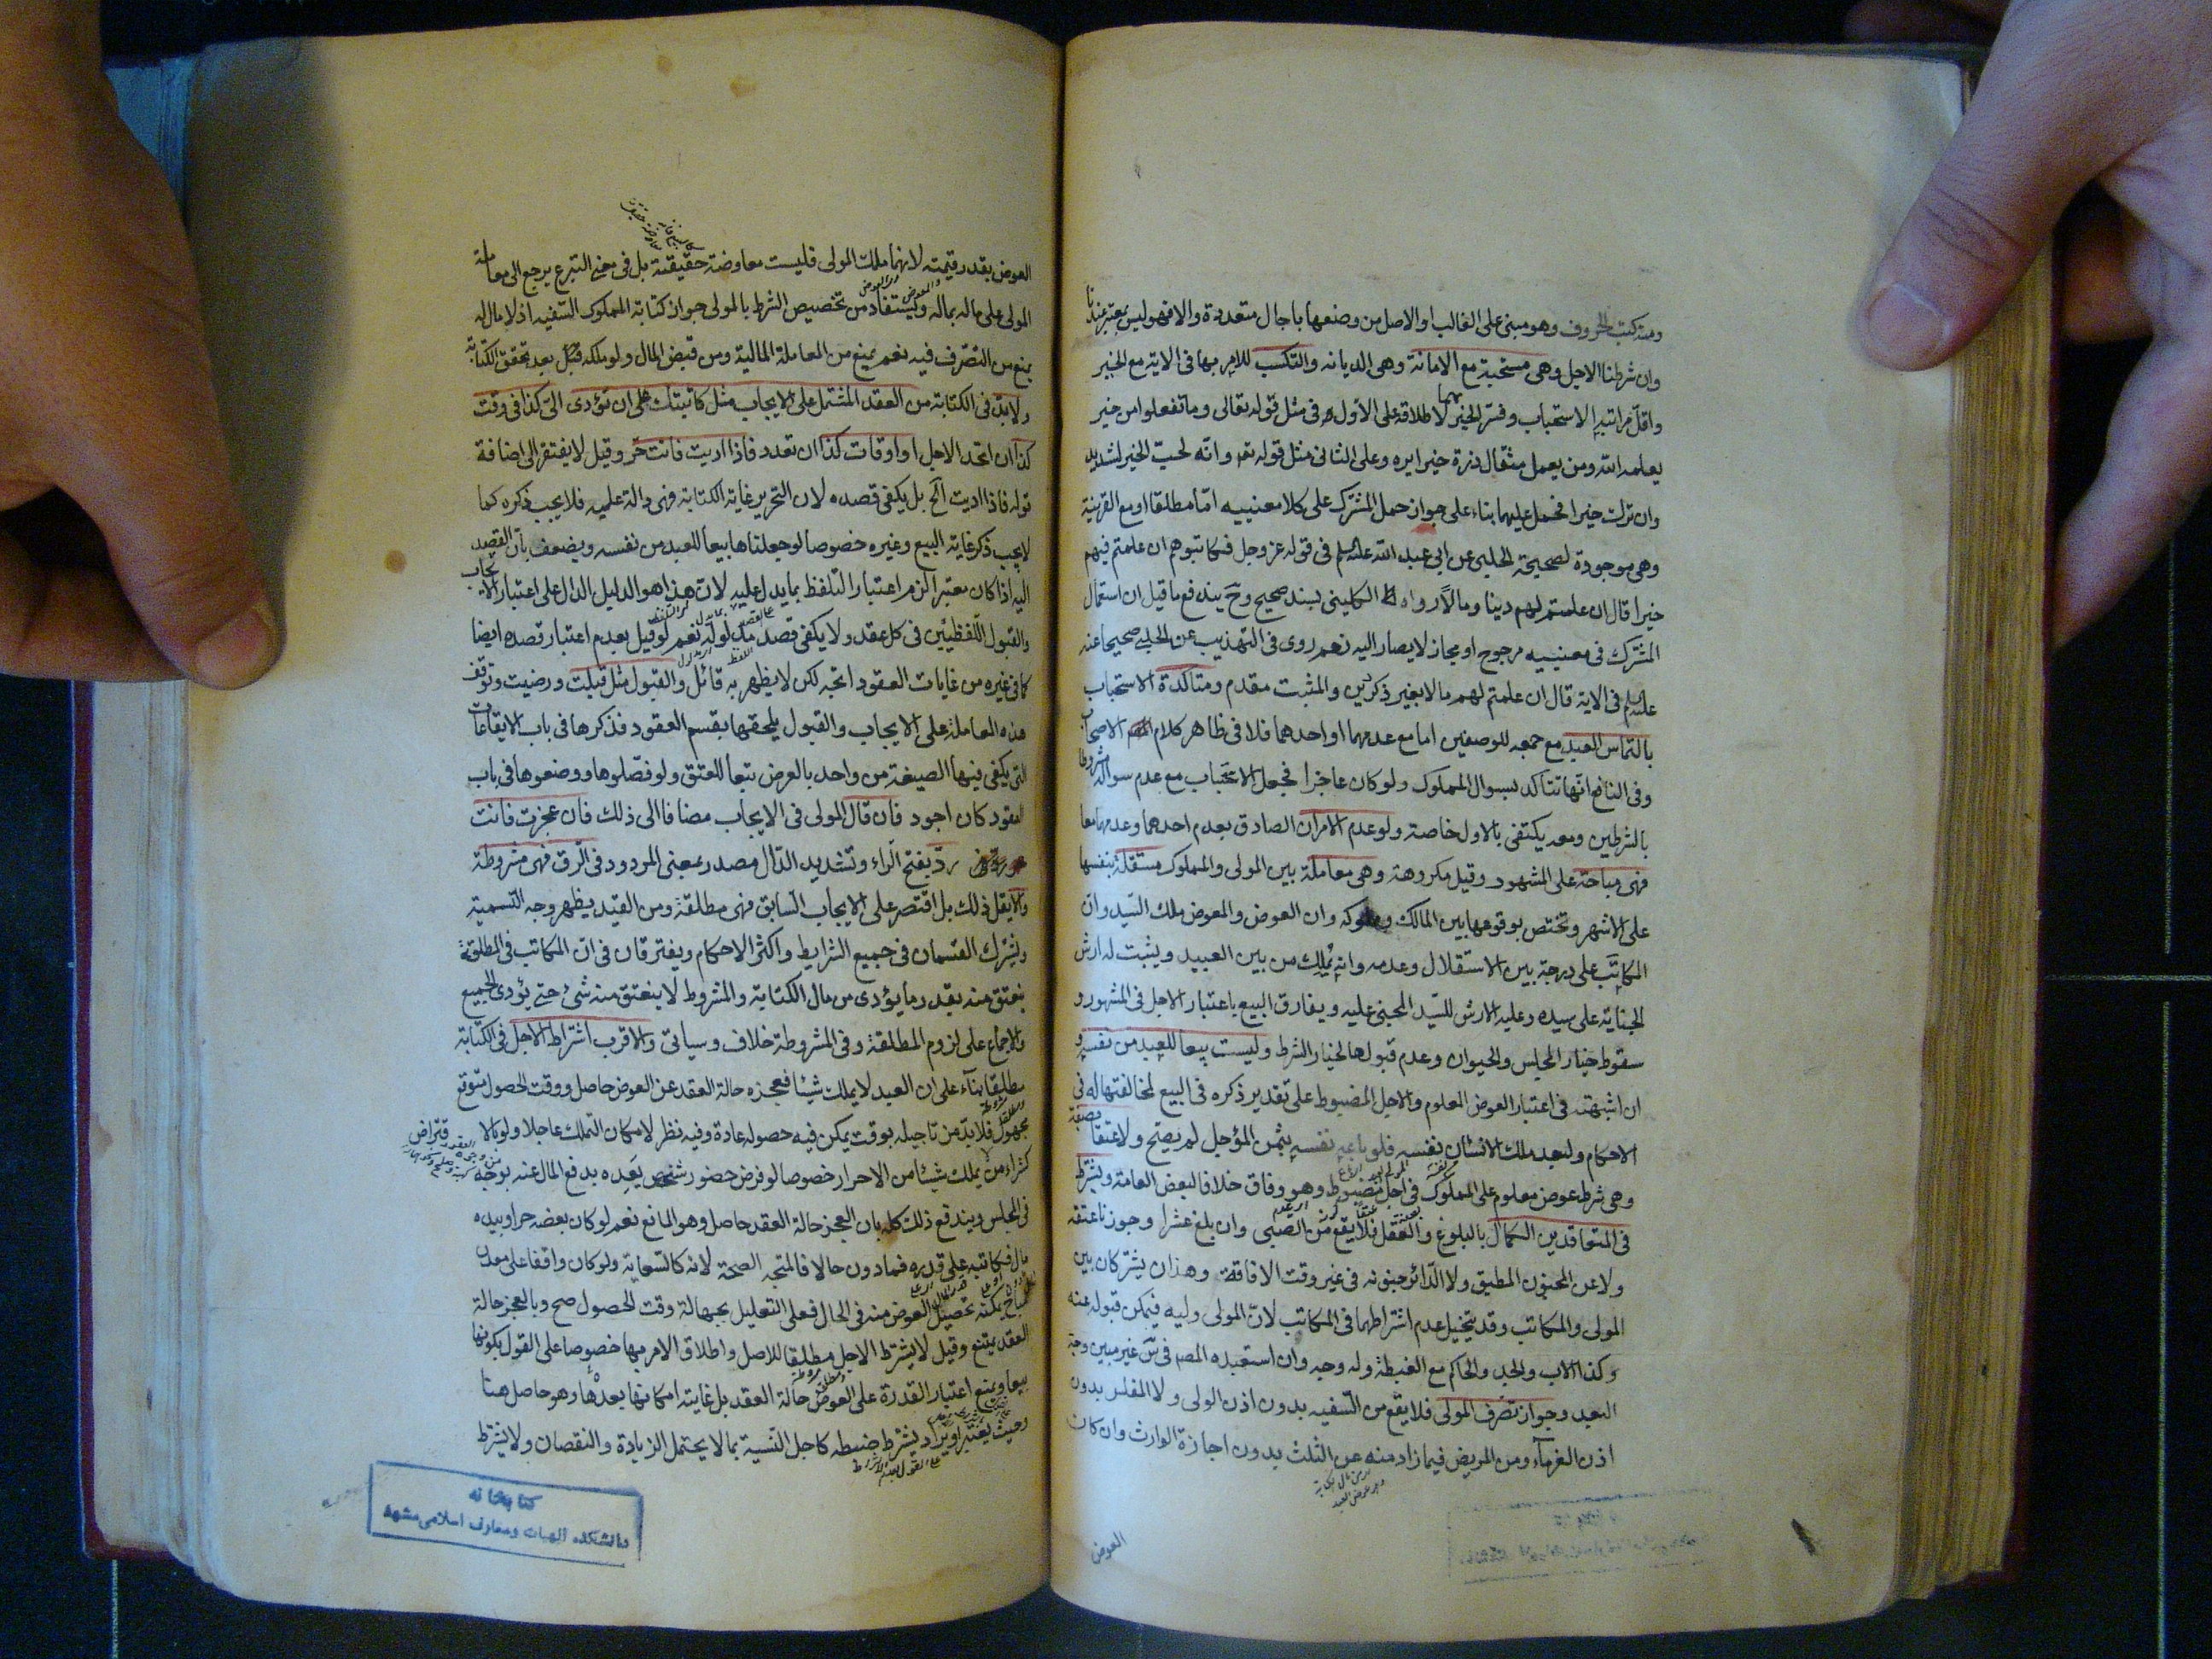 ومنه كتبت الحروف وهو مبنى على الغالب او الاصل من وضعها باجال متعددة والا فهو ليس بمعتبر عندنا
وان شرطنا الاجل وهى مستحبة مع الامانة وهى الديانه والتكسب للامر بها فى الاية مع الخير
واقل مراتبه الاستحباب وفسر الخير بهما لاطلاقه على الاول فى مثل قوله تعالى وما تفعلوا من خير
يعلمه الله ومن يعمل مثقال ذرة خيرا يره وعلى الثانى مثل قوله تعه وانه لحب الخير لشديد
وان ترك خيرا فحمل عليهما بناء على جواز حمل المشترك على كلا معنييه اما مطلقا او مع القرينة
وهى موجودة لصحيحة الحلبى عن ابى عبد الله عليه السلم فى قوله عز وجل فكاتبوهم ان علمتم فيهم
خيرا قال ان علمتم لهم دينا ومالا رواه الكلينى بسند صحيح وح يندفع ما قيل ان استعمال
المشترك فى معنييه مرجوح او مجاز لا يصار اليه نعم روى فى التهذيب عن الحلبى صحيحا عنه
عليه السلم فى الاية قال ان علمتم لهم مالا بغير ذكر دين والمثبت مقدم ومتاكدة الاستحباب
بالتماس العبد مع جمعه للوصفين اما مع عدمهما او احدهما فلا فى ظاهر كلام الاصحاب
وفى النافع انها تتاكد بسوال المملوك ولو كان عاجزا فجعل الاستحباب مع عدم سواله مشروطا
بالشرطين ومعه يكتفى بالاول خاصة ولو عدم الامران الصادق بعدم احدهما وعدمهما معا
فهى مباحة على المشهور وقيل مكروهة وهى معاملة بين المولى والمملوك مستقلة بنفسها
على الاشهر وتختص بوقوعها بين المالك ومملوكه وان العوض والمعوض ملك السيد وان
المكاتب على درجة بين الاستقلال وعدمه وانه يملك من بين العبيد ويثبت له ارش
الجناية على سيده وعليه الارش للسيد المجنى عليه ويفارق البيع باعتبار الاجل فى المشهور و
سقوط خيار المجلس والحيوان وعدم قبولها لخيار الشرط وليست بيعا للعبد من نفسه و
ان اشبهته فى اعتبار العوض المعلوم والاجل المضبوط على تقدير ذكره فى البيع لمخالفتها له فى
الاحكام ولبعد ملك الانسان نفسه فلو باعه نفسه بثمن مؤجل لم يصح ولا عتقا بصفة
وهى شرط عوض معلوم على المملوك فى اجل مضبوط وهو وفاق خلافا لبعض العامة ويشترط
فى المتعاقدين الكمال بالبلوغ والعقل فلا يقع من الصبى وان بلغ عشرا وجوزنا عتقه
ولا من المجنون المطبق ولا الدائر جنونه فى غير وقت الافاقة وهذان يشتركان بين
المولى والمكاتب وقد يتخيل عدم اشتراطهما فى المكاتب لان المولى وليه فيمكن قبوله عنه
وكذا الاب والجد والحاكم مع الغبطة وله وجه وان استبعده المصه فى س غير مبين وجه
البعد وجواز تصرف المولى فلا يقع من السفيه بدون اذن الولى ولا المفلس بدون
اذن الغرماء ومن المريض فيما زاد منه عن الثلث بدون اجازة الوارث وان كان
العوض
العوض بقدر قيمته لانهما ملك المولى فليست معاوضة حقيقية بل فى معنى التبرع يرجع الى معاملة
المولى على ماله بماله ويستفاد من تخصيص الشرط بالمولى جواز كتابة المملوك السفيه اذ لا مال له
يمنع من التصرف فيه نعم يمنع من المعاملة المالية ومن قبض المال ولو ملكه قبل بعد تحقق الكتابة
ولابد فى الكتابة من العقد المشتمل على الايجاب مثل كاتبتك على ان تؤدى الى كذا فى وقت
كذا ان اتحد الاجل او اوقات كذا ان تعدد فاذا اديت فانت حر وقيل لا يفتقر الى اضافة
قوله فاذا اديت الخ بل يكفى قصده لان التحرير غاية الكتابة فهى دالة عليه فلا يجب ذكره كما
لا يجب ذكر غاية البيع وغيره خصوصا لو جعلناها بيعا للعبد من نفسه ويضعف بان القصد
اليه اذا كان معتبرا لزم اعتبار التلفظ بما يدل عليه لان هذا هو الدليل الدال على اعتبار الايجاب
والقبول اللفظيين فى كل عقد ولا يكفى قصد مدلوله نعم لو قيل بعدم اعتبار قصده ايضا
كما فى غيره من غايات العقود اتجه لكن لا يظهر به قائل والقبول مثل قبلت ورضيت وتوقف
هذه المعاملة على الايجاب والقبول يلحقها بقسم العقود فذكرها فى باب الايقاعات
التى يكفى فيها الصيغة من واحد بالعرض تبعا للعتق ولو فصلوها ووضعوها فى باب
العقود كان اجود فان قال المولى فى الايجاب مضافا الى ذلك فان عجزت فانت
رد بفتح الراء وتشديد الدال مصدر بمعنى المردود فى الرق فهى مشروطة
والا يقل ذلك بل اقتصر على الايجاب السابق فهى مطلقة ومن القيد يظهر وجه التسمية
ويشترك القسمان فى جميع الشرايط واكثر الاحكام ويفترقان فى ان المكاتب فى المطلقة
ينعتق منه بقدر ما يؤدى من مال الكتابة والمشروط لا ينعتق منه شئ حتى يؤدى الجميع
والاجماع على لزوم المطلقة وفى المشروطة خلاف وسياتى والاقرب اشتراط الاجل فى الكتابة
مطلقا بناء على ان العبد لا يملك شيئا فعجزه حالة العقد عن العوض حاصل ووقت الحصول متوقع
مجهول فلابد من تاجيله بوقت يمكن فيه حصوله عادة وفيه نظر لامكان التملك عاجلا ولو بالاقتراض
كشراء من لا يملك شيئا من الاحرار خصوصا لو فرض حضور شخص يعده بدفع المال عنه بوجه
فى المجلس ويندفع ذلك كله بان العجز حالة العقد حاصل وهو المانع نعم لو كان بعضه حرا وبيده
مال فكاتبه على قدره فما دون حالا فالمتجه الصحة لانه كالسعاية ولو كان واقفا على معدن
مباح يمكنه تحصيل العوض منه فى الحال فعلى التعليل بجهالة وقت الحصول صح وبالعجز حالة
العقد يمتنع وقيل لا يشترط الاجل مطلقا للاصل واطلاق الامر بها خصوصا على القول بكونها
بيعا ويمنع اعتبار القدرة على العوض حالة العقد بل غايته امكانها بعده وهو حاصل هنا
وحيث يعتبر او يراد يشترط ضبطه كاجل النسية بما لا يحتمل الزيادة والنقصان ولا يشترط
على القول بعدم الاشتراط
كتابخانه
دانشكده الهيات ومعارف اسلامى مشهد